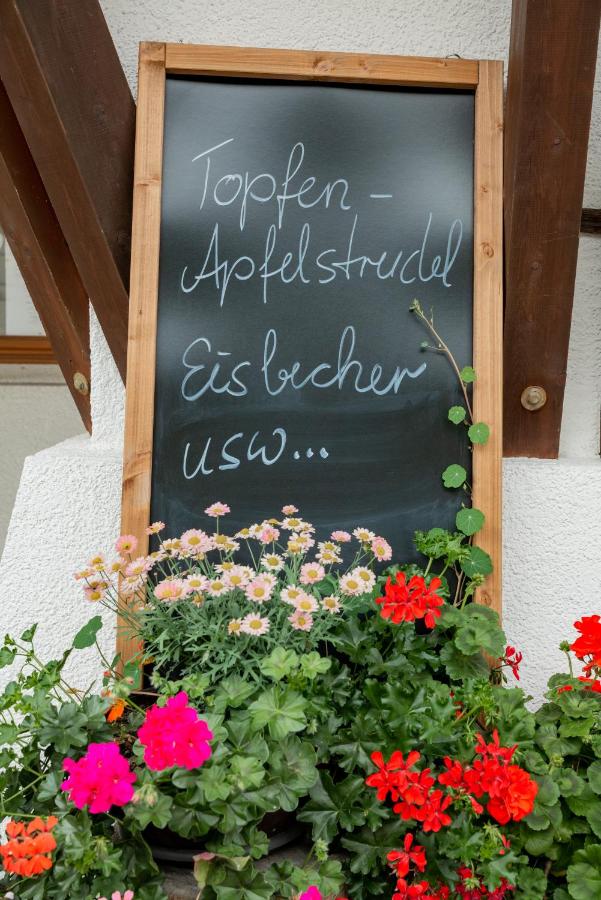 Topfen -
Apfelstrudel
Eisbecher
usw...